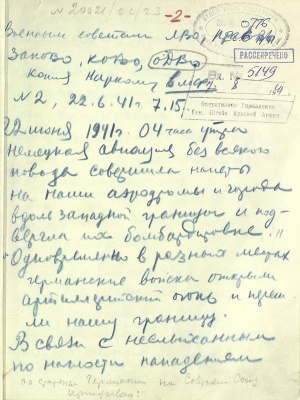 -2-
Военным советам ЛВО, ПрибОВО,
ЗапОВО, КОВО, ОдВО
Копия Наркому В.мор.
РАССЕКРЕЧЕНО
Вх. № 5149
№ 2, 22.6.41 г. 7.15
Оперативное Управление
Ген. Штаба Красной Армии
22 июня 1941 г. 04 часа утра
немецкая авиация без всякого
повода совершила налеты
на наши аэродромы и города
вдоль западной границы и под-
вергла их бомбардировке.
Одновременно в разных местах
германские войска открыли
артиллерийский огонь и переш-
ли нашу границу.
В связи с неслыханным
по наглости нападением
со стороны Германии на Советский Союз